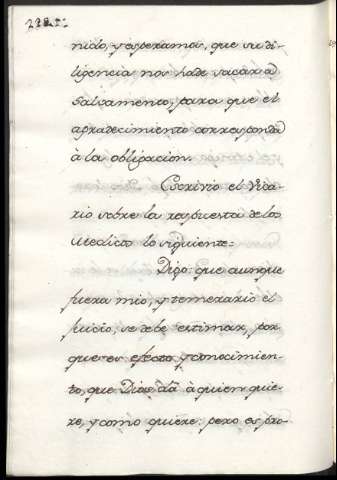 nido, y esperamos, que su di-
ligencia nos hade sacar à
salvamento, para que el
agradecimiento corresponda
à la obligacion.
Escrivio el Vica-
rio sobre la respuesta de los
Medicos lo siguiente:
Digo: que aunque
fuera mio, y temerario el
juicio, se debe estimar, por
que es efecto, y conocimien-
to, que Dios dà à quien quie-
re, y como quiere: pero es pro-